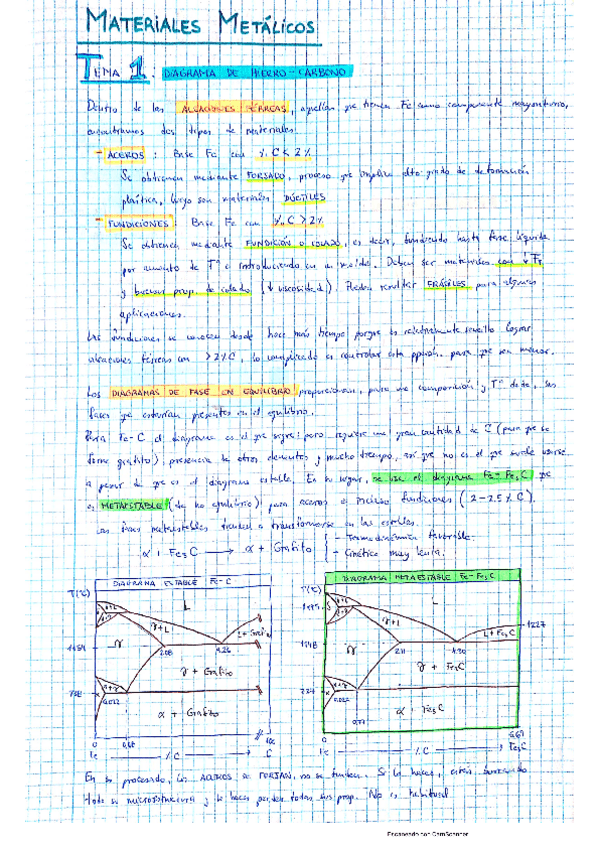 MATERIALES METÁLICOS
TEMA 1. DIAGRAMA DE HIERRO-CARBONO
Dentro de las ALEACIONES FÉRREAS, aquellas que tienen Fe como componente mayoritario,
encontramos dos tipos de materiales:
- ACEROS: Base Fe con % C < 2%
Se obtienen mediante FORJADO, proceso que implica alto grado de deformación
plástica, luego son materiales DÚCTILES
- FUNDICIONES: Base Fe con % C > 2%
Se obtienen mediante FUNDICIÓN O COLADO, es decir, fundiendo hasta fase líquida
por aumento de Tª e introduciendo en un molde. Deben ser materiales con ↓ TF
y buenas prop. de colado (↓ viscosidad). Pueden resultar FRÁGILES para algunas
aplicaciones.
Las fundiciones se conocen desde hace más tiempo porque es relativamente sencillo lograr
aleaciones férreas con >2% C, lo complicado es controlar esta para que sea menor.
Los DIAGRAMAS DE FASE EN EQUILIBRIO proporcionan, para una composición y Tª dada, las
fases que estarían presentes en el equilibrio.
Para Fe-C el diagrama es el que sigue; pero requiere una gran cantidad de C (para que se
forme grafito), presencia de otros elementos y mucho tiempo, así que no es el que suele usarse
a pesar de que es el diagrama estable. En su lugar, se usa el diagrama Fe-Fe3C que
es METAESTABLE (de no equilibrio) para aceros e incluso fundiciones (2-2.5% C).
Las fases metaestables tienden a transformarse en las estables.
α + Fe3C → α + Grafito
- Termodinámica favorable.
- Cinética muy lenta.
DIAGRAMA ESTABLE Fe-C
T(ºC)
L
γ+L
L+Grafito
1154
γ
2.08
4.26
γ + Grafito
738
α+γ
0.022
α + Grafito
0
0.68
100
Fe
%C
C
DIAGRAMA METAESTABLE Fe-Fe3C
T(ºC)
1495
δ
L
γ+L
L+Fe3C
1227
1148
γ
2.11
4.30
γ + Fe3C
α+γ
α + Fe3C
0.77
0
6.67
Fe
%C
Fe3C
En su procesado, los ACEROS se FORJAN, no se funden. Si lo haces, estás borrando
toda su microestructura y le haces perder todas sus prop. No es habitual
Escaneado con CamScanner